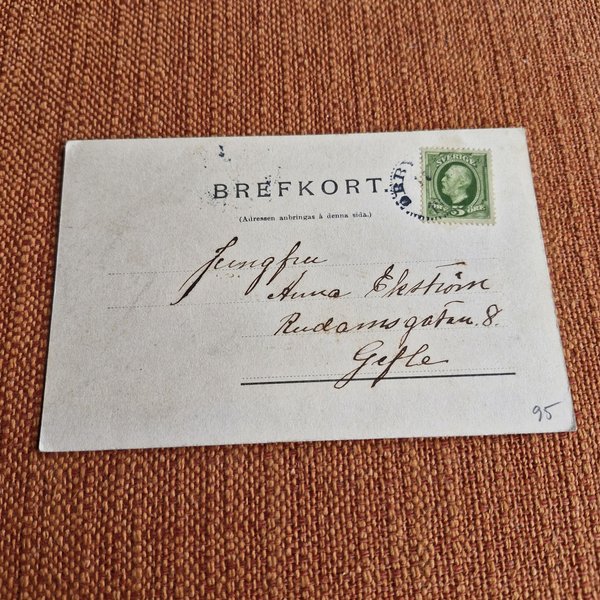 BREFKORT.
(Adressen anbringas å denna sida.)
SVERIGE
5
ÖRE
Jungfru
Anna Ekström
Rudamsgatan 8.
Gefle
95